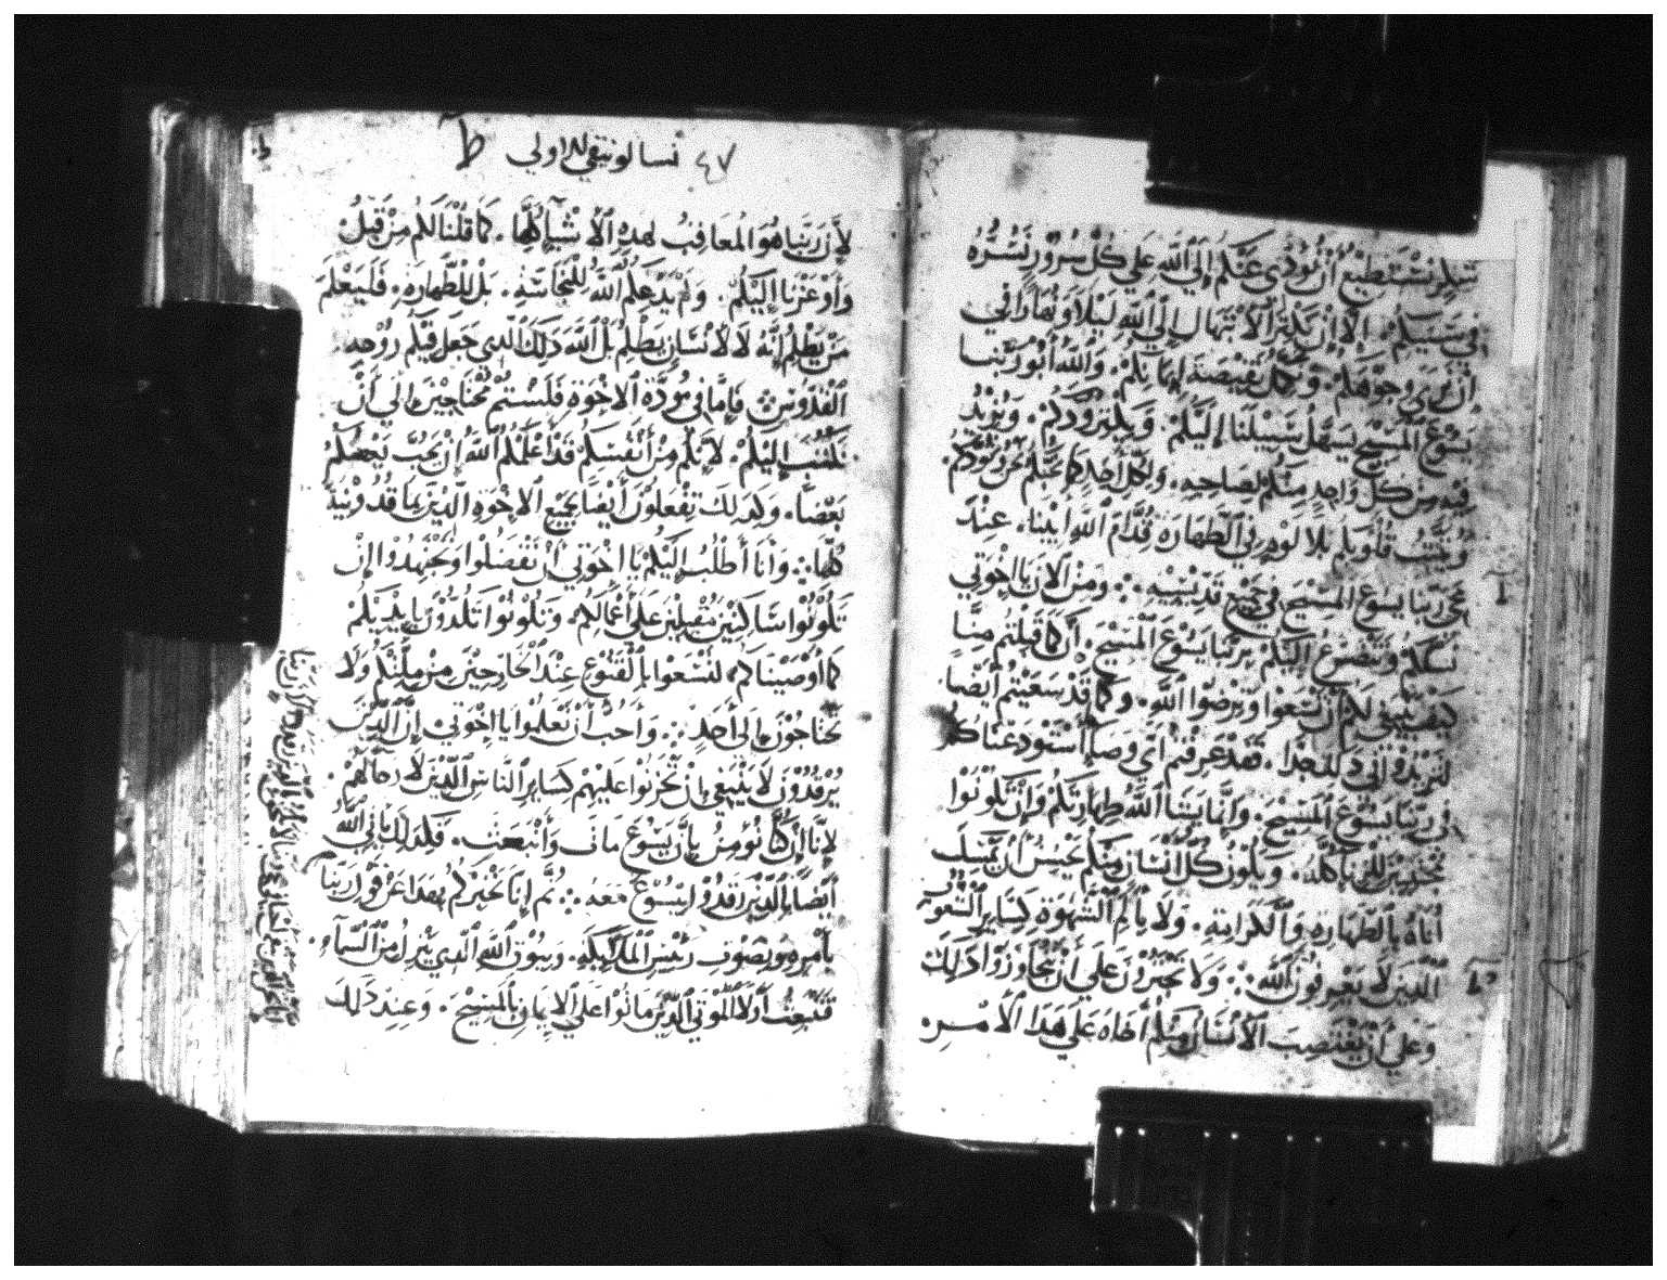 شكر نستطيع أن نؤدي عنكم إلي الله علي كل سرور نسره
في سببكم. إلا أن نكثر الابتهال إلي الله ليلا ونهارا في
أن نري وجوهكم. ونكمل نقيصة إيمانكم. والله أبو ربنا
يسوع المسيح يسهل سبيلنا إليكم. ويكثر ودكم. ويزيد
فيه من كل واحد منكم لصاحبه. ولكل أحد كما نحبكم نحن ونودكم.
ويثبت قلوبكم بلا لوم في الطهارة قدام الله أبينا. عند
مجي ربنا يسوع المسيح في جميع قديسيه ∴ ومن الان يا اخوتي
نسلكم ونتضرع إليكم بربنا يسوع المسيح. أن كما قبلتم منا
كيف ينبغي لكم أن تسعوا وترضوا الله. وكما قد سعيتم أيضا
لتزيدوا في ذلك جدا. فقد عرفتم أي وصايا أستودعناكم
في ربنا يسوع المسيح. وإنما يشا الله طهارتكم وإن تكونوا
مجتنبين للزنا كله. ويكون كل انسان منكم يحسن أن يمسك
أناه بالطهارة والكرامة. ولا بألم الشهوة كساير الشعوب
الذين لا يعرفون الله ∴ ولا تجترون علي أن تجاوزوا ذلك
وعلي أن يغتصب الانسان منكم أخاه علي هذا الأمر.
٤٧ تسالونيقي الاولي ط
لأن ربنا هو المعاقب لهذه الأشيا كلها. كما قلنا لكم من قبل
وأوعزنا إليكم. ولم يدعكم الله للنجاسة. بل للطهارة. فليعلم
من يظلم إنه لا لأنسان يظلم بل الله ذلك الذي جعل فيكم روحه
القدوس ∴ فإما في مودة الاخوة فلستم محتاجين إلي أن
نكتب إليكم. لأنكم من أنفسكم قد أعلمكم الله أن يحب بعضكم
بعضا. وكذلك تفعلون أيضا بجميع الاخوة الذين بماقدونية
كلها ∴ وأنا أطلب إليكم يا اخوتي أن تفضلوا وتجتهدوا إن
تكونوا ساكنين مقبلين علي أعمالكم. وتكونوا تكدون بايديكم
كما أوصيناكم لتسعوا بالقنوع عند الخارجين من ملتكم ولا
تحتاجون إلي أحد ∴ وأحب أن تعلموا يا اخوتي إن الذين
يرقدون لا ينبغي بان تحزنوا عليهم كساير الناس الذين لا رجا لهم
لإنا إن كنا نؤمن بأن يسوع مات وأنبعث. فلذلك ياتي الله
أيضا بالذين رقدوا بيسوع معه ∴ ثم إنا نخبركم بهذا عن قول ربنا
بأمره وبصوت رئيس الملايكة. وببوق الله الذي ينزل من السماء
فتنبعث أولا الموتي الذين ماتوا علي الايمان بالمسيح. وعند ذلك